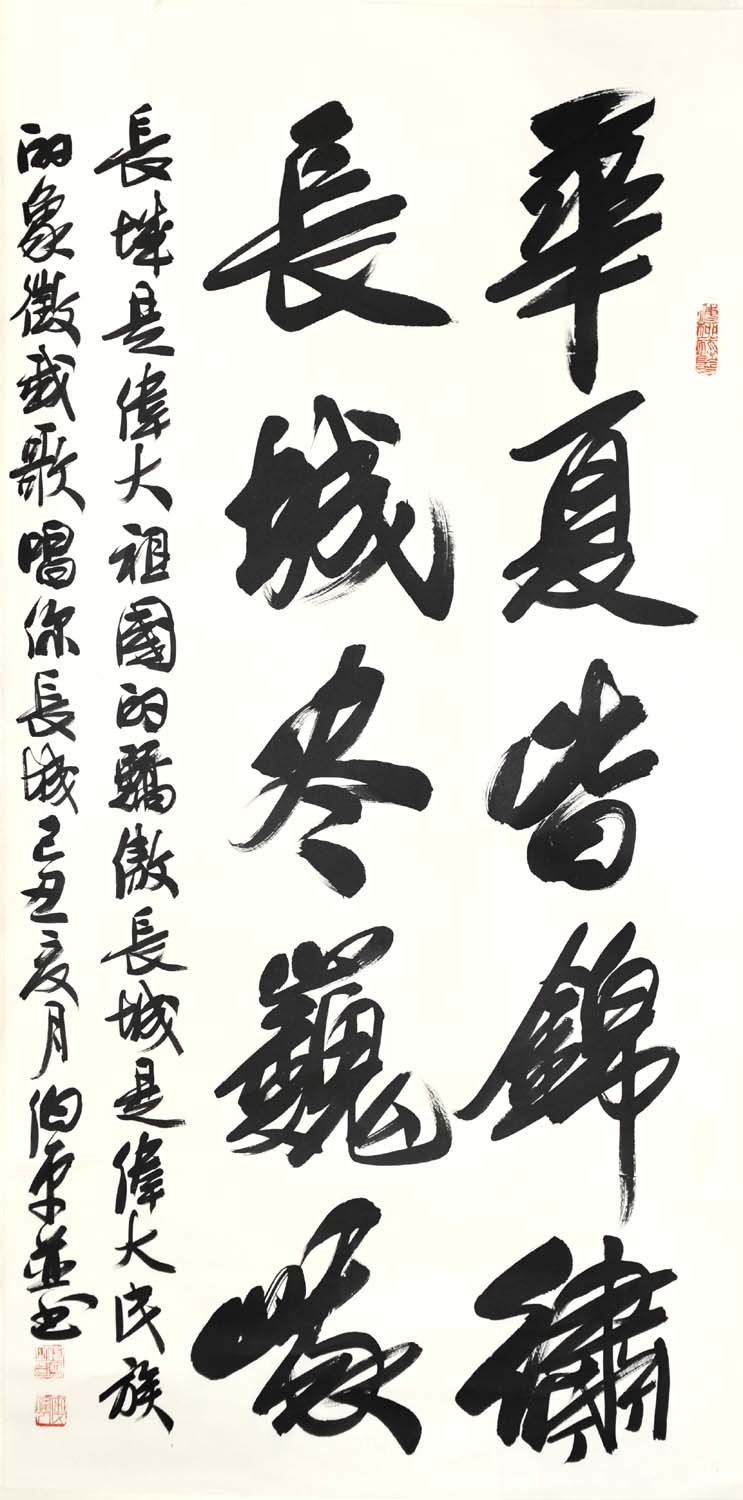 華夏皆錦繡
長城尽巍峨
長城是偉大祖國的驕傲長城是偉大民族
的象徵我歌唱你長城己丑夏月伯平並書